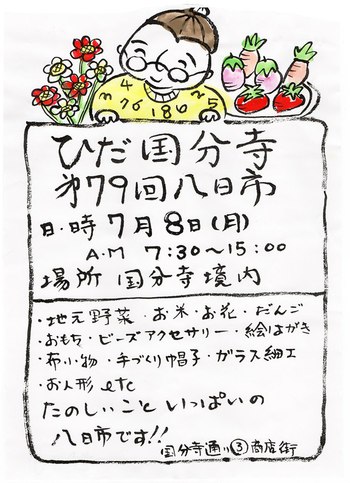 ひだ国分寺
第79回八日市
日・時 7月8日(月)
AM 7:30~15:00
場所 国分寺境内
・地元野菜・お米・お花・だんご
・おもち・ビーズアクセサリー・絵はがき
・布小物・手づくり帽子・ガラス細工
・お人形 etc
たのしいこといっぱいの
八日市です!!
国分寺通り③商店街